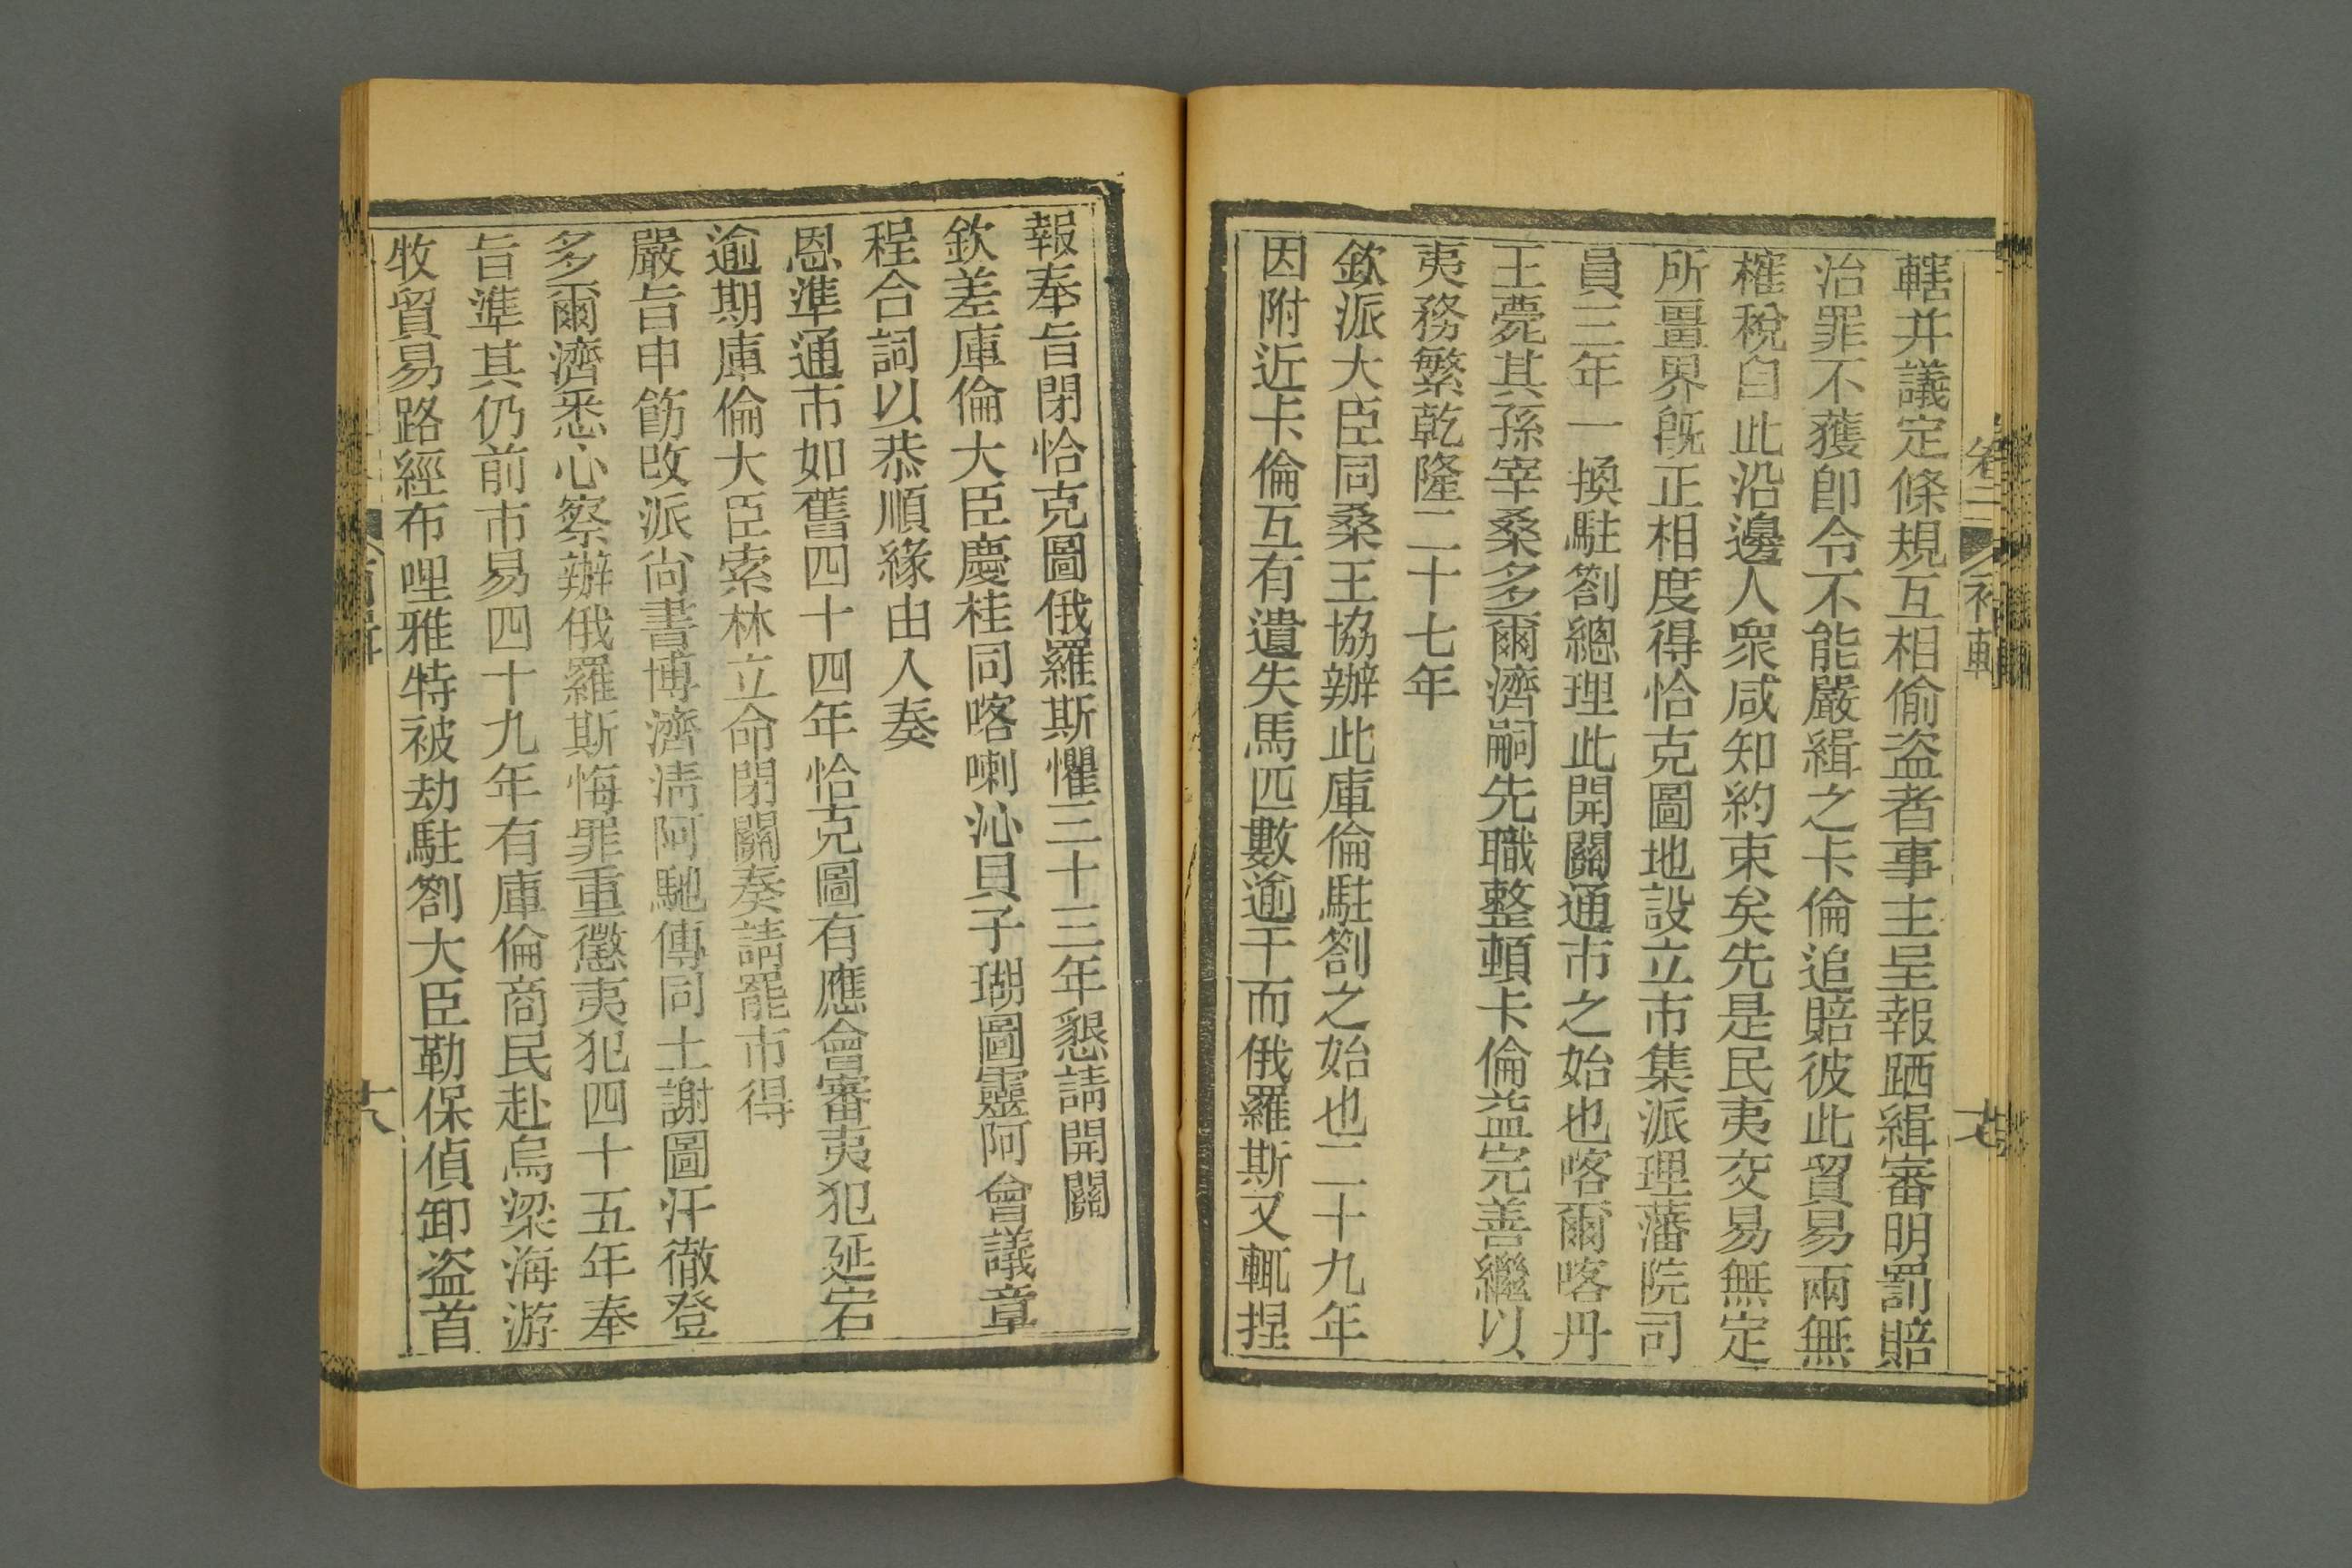 轄并議定條規互相偷盗者事主呈報跴緝審明罰賠
治罪不獲卽令不能嚴緝之卡倫追賠彼此貿易兩無
榷稅自此沿邊人衆咸知約束矣先是民夷交易無定
所畺界旣正相度得恰克圖地設立市集派理藩院司
員三年一換駐劄總理此開關通市之始也喀爾喀丹
王薨其孫宰桑多爾濟嗣先職整頓卡倫益完善繼以
夷務繁乾隆二十七年
欽派大臣同桑王協辦此庫倫駐劄之始也二十九年
因附近卡倫互有遺失馬匹數逾千而俄羅斯又輒捏
報奉旨閉恰克圖俄羅斯懼三十三年懇請開關
欽差庫倫大臣慶桂同喀喇沁貝子瑚圖靈阿會議章
程合詞以恭順緣由入奏
恩準通市如舊四十四年恰克圖有應會審夷犯延宕
逾期庫倫大臣索林立命閉關奏請罷市得
嚴旨申飭改派尙書博濟淸阿馳傳同土謝圖汗徹登
多爾濟悉心察辦俄羅斯悔罪重懲夷犯四十五年奉
旨準其仍前市易四十九年有庫倫商民赴烏梁海游
牧貿易路經布哩雅特被劫駐劄大臣勒保偵卸盗首
十八